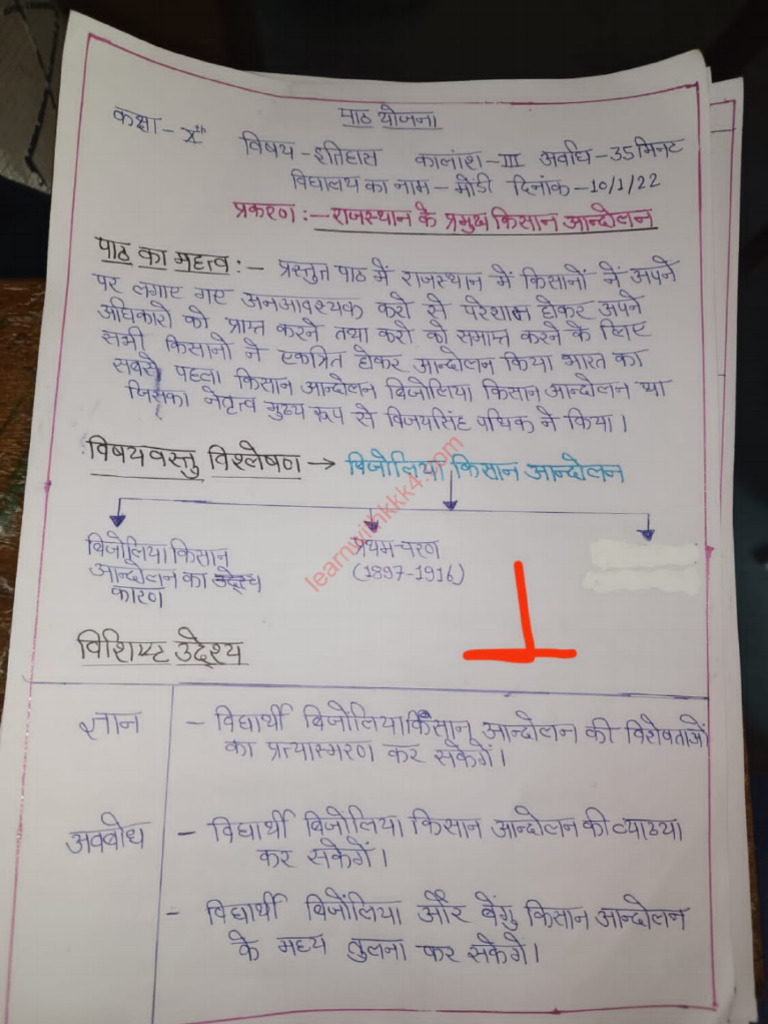 पाठ योजना
कक्षा - Xth विषय - इतिहास कालांश - III अवधि - 35 मिनट
विद्यालय का नाम - मोंडी दिनांक - 10/1/22
प्रकरण :- राजस्थान के प्रमुख किसान आन्दोलन
पाठ का महत्व :- प्रस्तुत पाठ में राजस्थान में किसानों नें अपने
पर लगाए गए अनआवश्यक करो से परेशान होकर अपने
अधिकारो को प्राप्त करने तथा करो को समाप्त करने के लिए
सभी किसानो ने एकत्रित होकर आन्दोलन किया भारत का
सबसे पहला किसान आन्दोलन बिजोलिया किसान आन्दोलन था
जिसका नेतृत्व मुख्य रूप से विजयसिंह पथिक ने किया।
विषयवस्तु विश्लेषण → बिजोलिया किसान आन्दोलन
बिजोलिया किसान
आन्दोलन का
कारण
प्रथम चरण
(1897-1916)
learnwithkkk4.com
विशिष्ट उद्देश्य
ज्ञान - विद्यार्थी बिजोलिया किसान आन्दोलन की विशेषताओं
का प्रत्यास्मरण कर सकेगें।
अवबोध - विद्यार्थी बिजोलिया किसान आन्दोलन की व्याख्या
कर सकेगें।
- विद्यार्थी बिजोंलिया और बेंगु किसान आन्दोलन
के मध्य तुलना कर सकेगे।